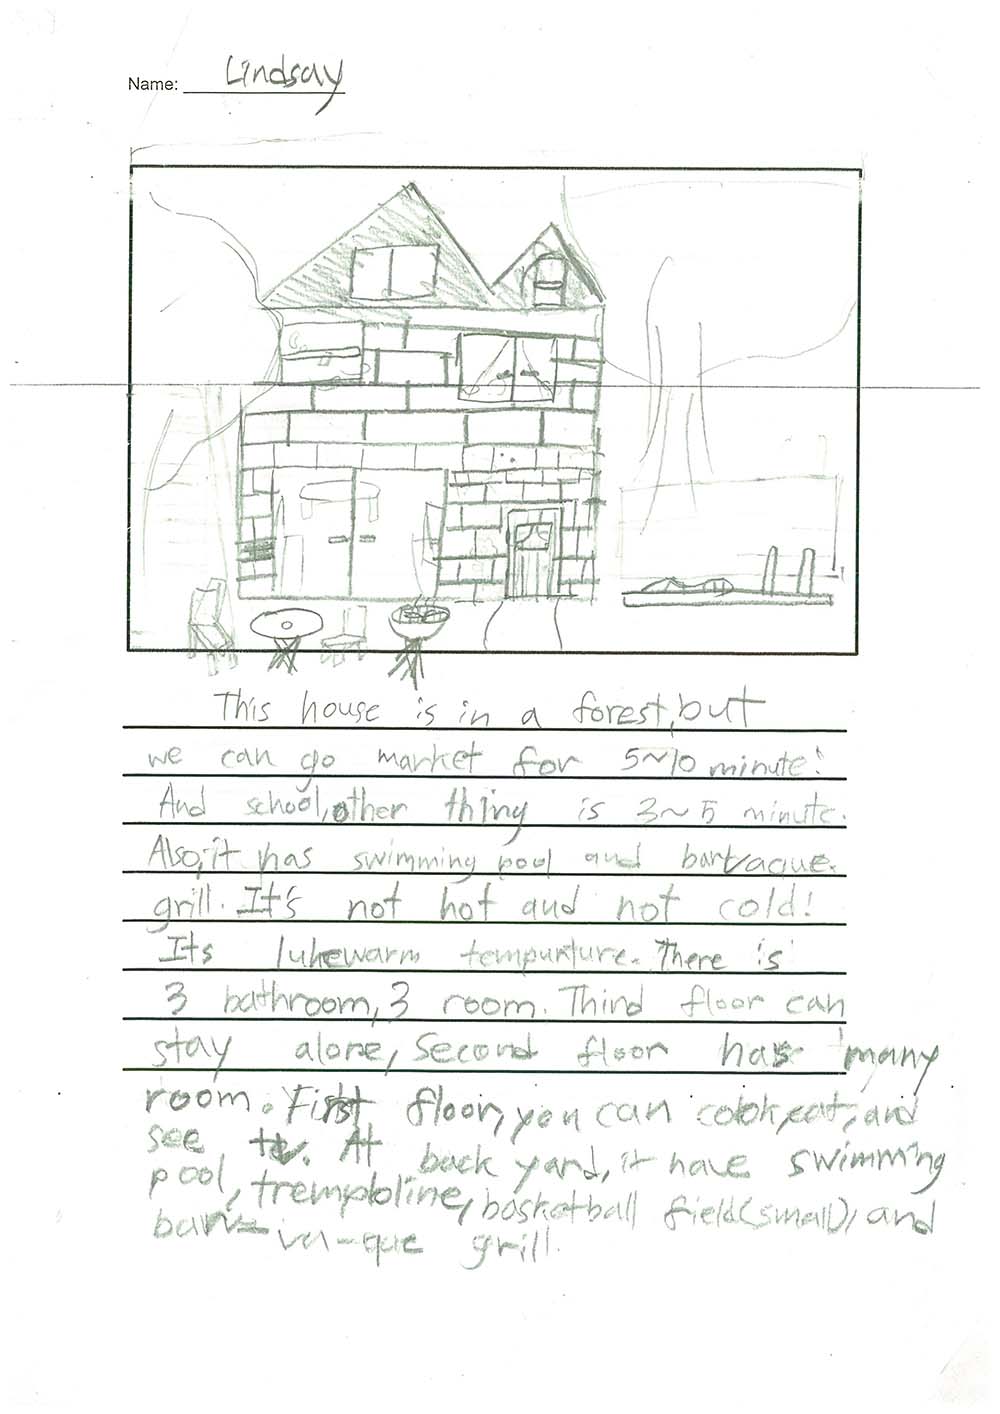 Name: Lindsay
This house is in a forest, but
we can go market for 5~10 minute!
And school, other thing is 3~5 minute.
Also, it has swimming pool and barvaque
grill. It's not hot and not cold!
Its lukewarm tempurture. There is
3 bathroom, 3 room. Third floor can
stay alone, Second floor has many
room. First floor, you can cook, eat, and
see tv. At back yard, it have swimming
pool, trempboline, basketball field(small), and
va-que grill.